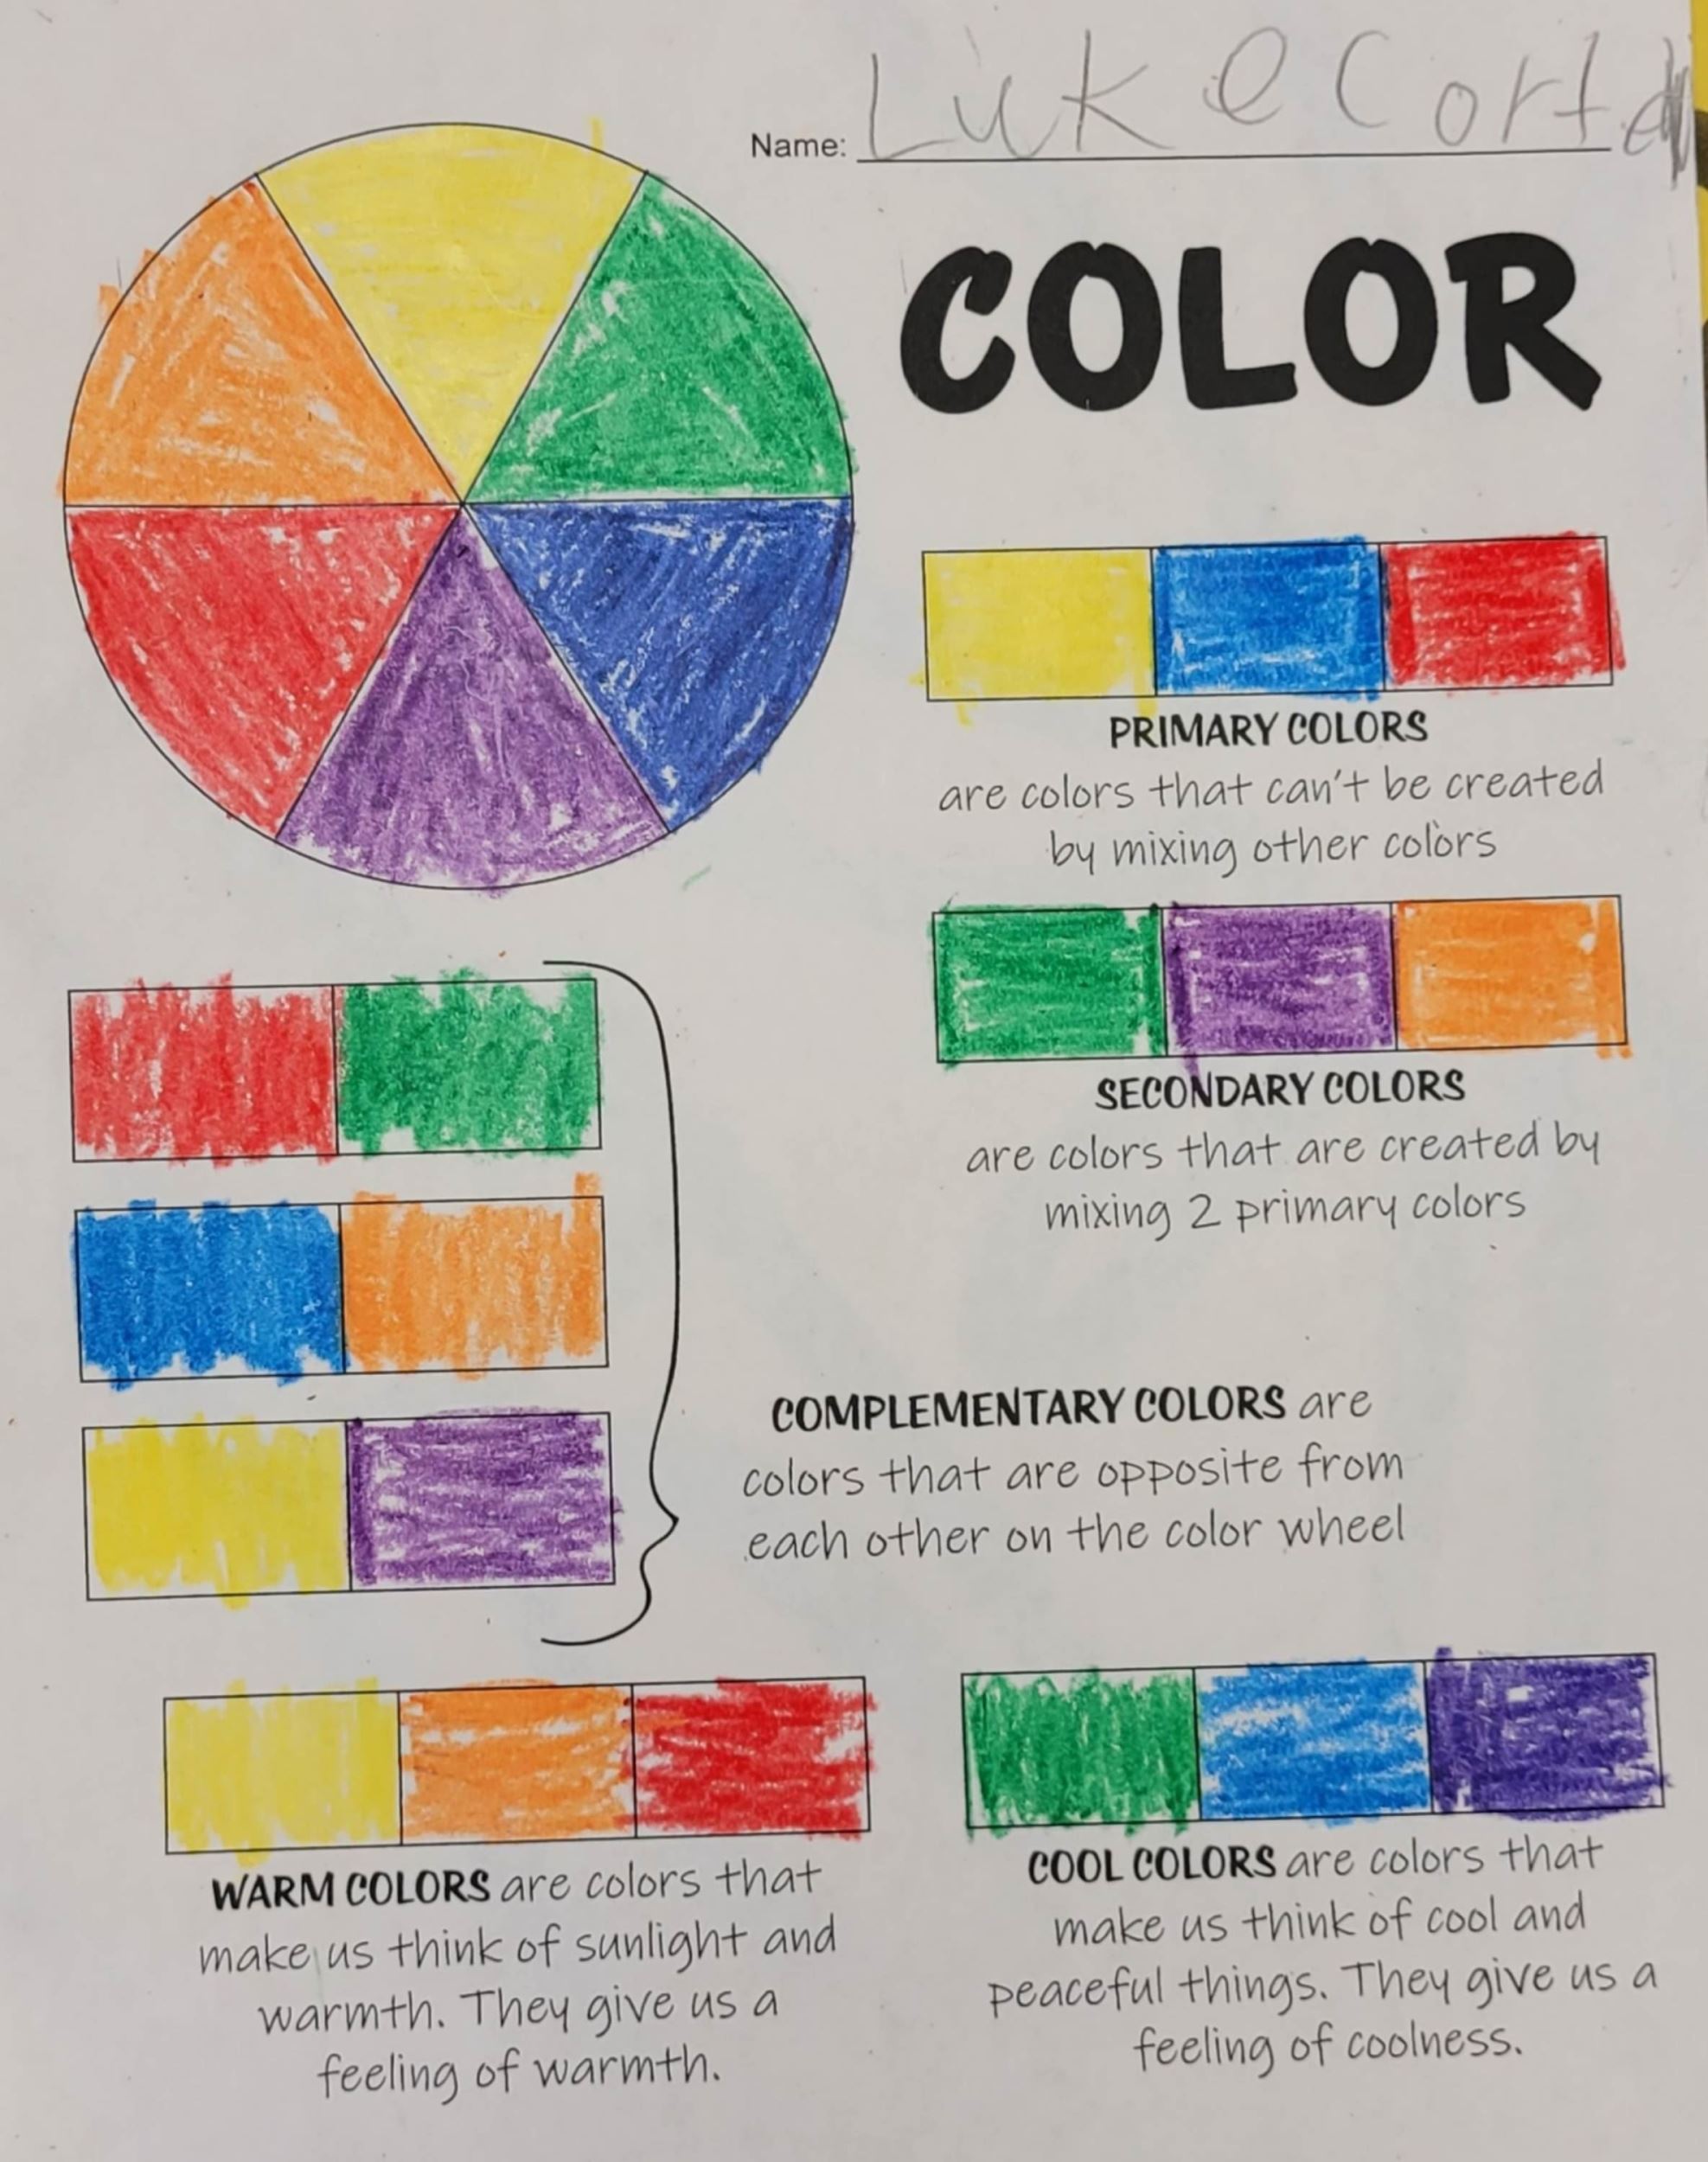 Name: Luke
COLOR
PRIMARY COLORS
are colors that can't be created
by mixing other colors
SECONDARY COLORS
are colors that are created by
mixing 2 primary colors
COMPLEMENTARY COLORS are
colors that are opposite from
each other on the color wheel
WARM COLORS are colors that
make us think of sunlight and
warmth. They give us a
feeling of warmth.
COOL COLORS are colors that
make us think of cool and
peaceful things. They give us a
feeling of coolness.